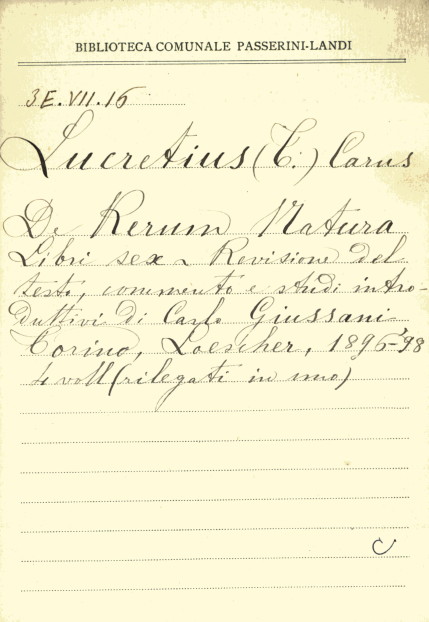 BIBLIOTECA COMUNALE PASSERINI-LANDI
3E.VII.16
Lucretius (T.) Carus
De Rerum Natura
Libri sex - Revisione del
testo, commento e studi intro-
duttivi di Carlo Giussani-
Torino, Loescher, 1896-98
4 voll (rilegati in uno)
C